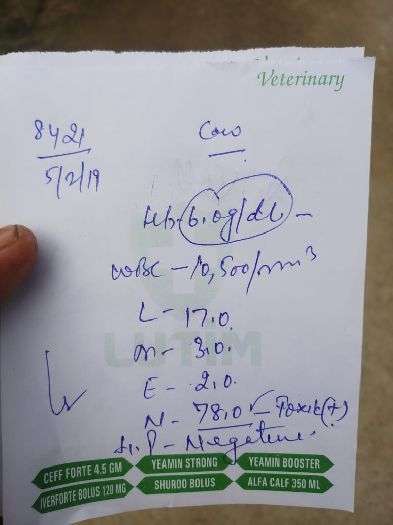 Veterinary
8421
5/2/19
Cow
Hb - 6.0g/dl -
WBC - 10,500/mm³
L - 17.0.
M - 3.0.
E - 2.0.
N - 78.0 - Toxic(+)
P - Negative.
LUTIM
CEFF FORTE 4.5 GM
YEAMIN STRONG
YEAMIN BOOSTER
IVERFORTE BOLUS 120 MG
SHUROO BOLUS
ALFA CALF 350 ML